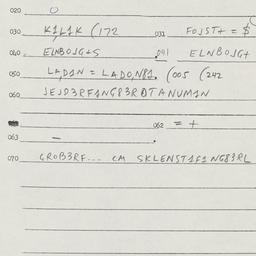 020 O
030 K1L1K (172 031 FOJST+ = $
040 ELNBOJG+S 041 ELNBOJG+
050 LADAN = LADO,N81. (005 (242
060 JEJD3RFANG83RDTANUMAN
062 = +
063 –
070 GROB3RF... CM SKLENSTAF1NG83RL